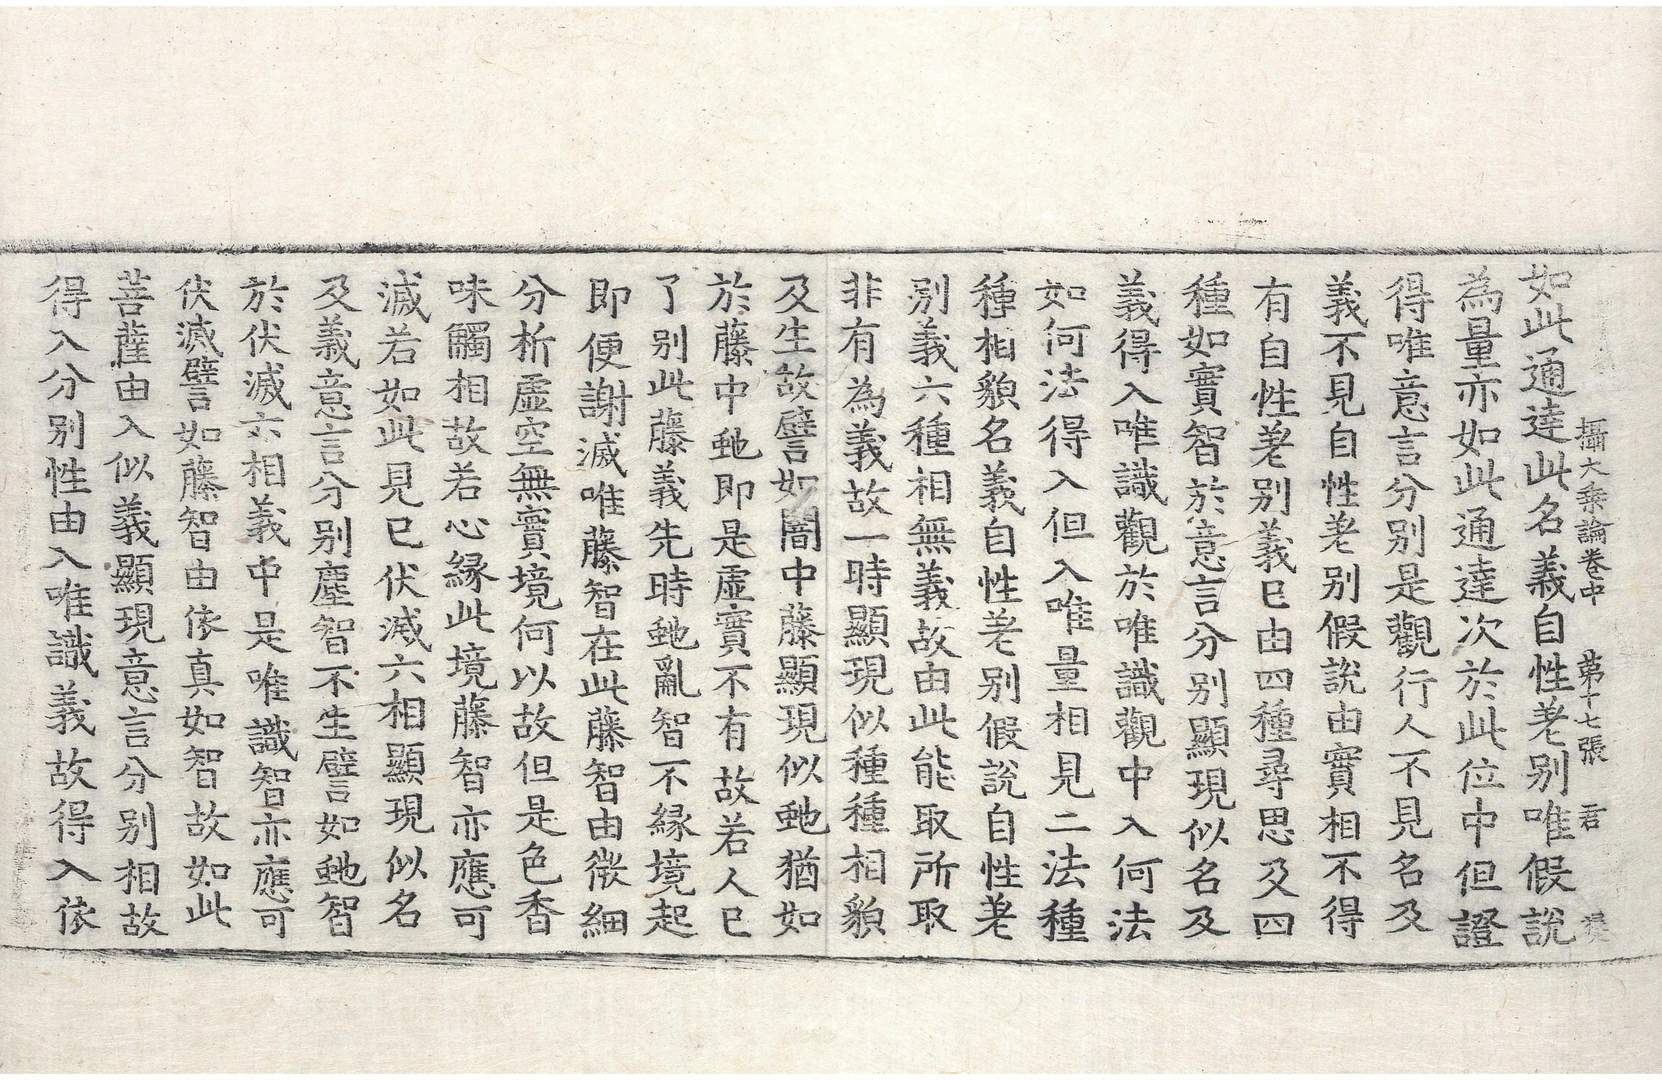 攝大乘論卷中 第十七張 君
如此通達此名義自性差别唯假說
為量亦如此通達次於此位中但證
得唯意言分别是觀行人不見名及
義不見自性差别假說由實相不得
有自性差别義已由四種尋思及四
種如實智於意言分别顯現似名及
義得入唯識觀於唯識觀中入何法
如何法得入但入唯量相見二法種
種相貌名義自性差别假說自性差
别義六種相無義故由此能取所取
非有為義故一時顯現似種種相貌
及生故譬如闇中藤顯現似虵猶如
於藤中虵即是虛實不有故若人已
了别此藤義先時虵亂智不緣境起
即便謝滅唯藤智在此藤智由微細
分析虛空無實境何以故但是色香
味觸相故若心緣此境藤智亦應可
滅若如此見已伏滅六相顯現似名
及義意言分别塵智不生譬如虵智
於伏滅六相義中是唯識智亦應可
伏滅譬如藤智由依真如智故如此
菩薩由入似義顯現意言分别相故
得入分别性由入唯識義故得入依